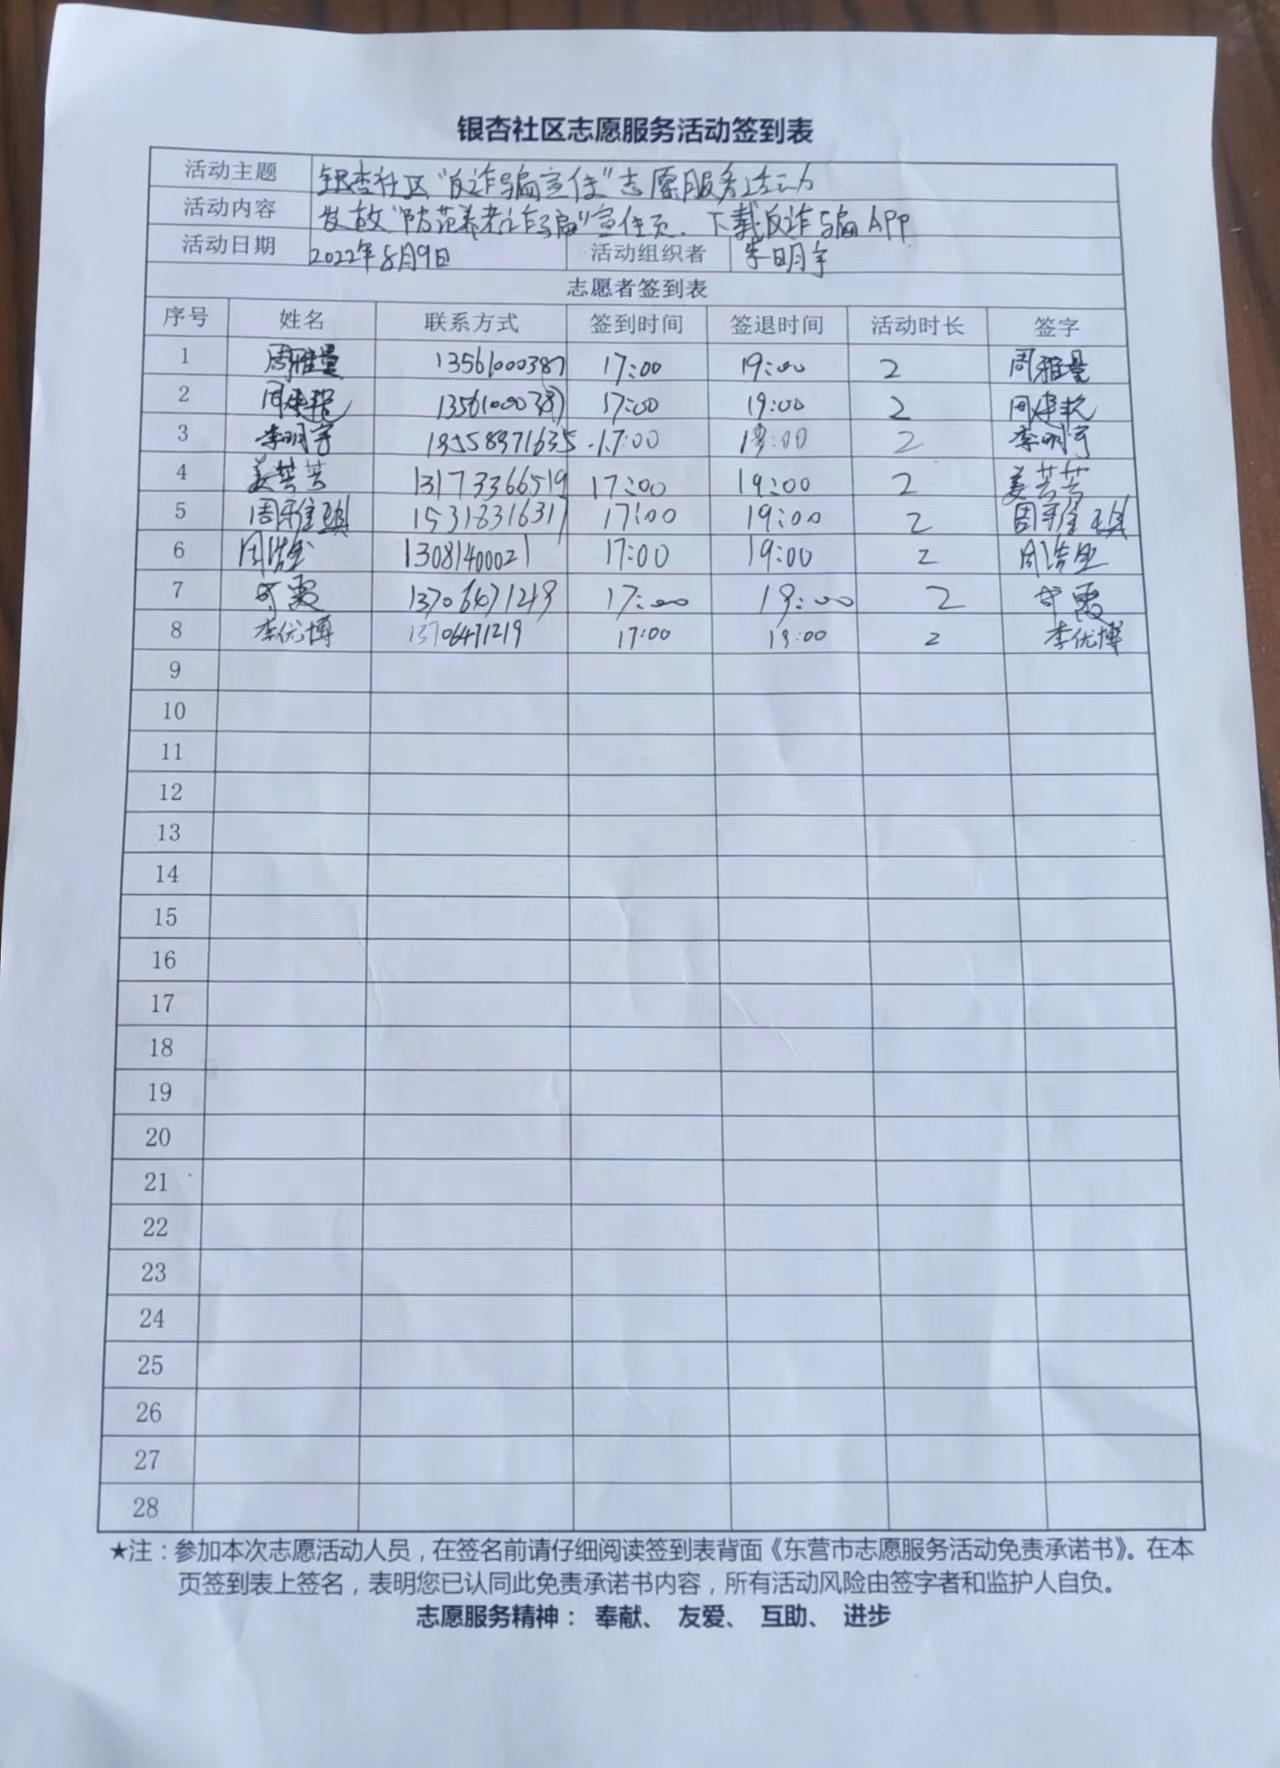 银杏社区志愿服务活动签到表
活动主题 银杏社区"反诈骗宣传"志愿服务活动
活动内容 发放"防范养老诈骗"宣传页、下载反诈骗APP
活动日期 2022年8月9日 活动组织者 李明宇
志愿者签到表
序号 姓名 联系方式 签到时间 签退时间 活动时长 签字
1 周雅量 13561000387 17:00 19:00 2 周雅量
2 13561000387 17:00 19:00 2
3 李明宇 17:00 19:00 2 李明宇
4 姜芸芸 13173366519 17:00 19:00 2 姜芸芸
5 周雅琪 15318316317 17:00 19:00 2 周雅琪
6 13081400021 17:00 19:00 2
7 13706471219 17:00 19:00 2
8 李优博 13706471219 17:00 19:00 2 李优博
9
10
11
12
13
14
15
16
17
18
19
20
21
22
23
24
25
26
27
28
★注：参加本次志愿活动人员，在签名前请仔细阅读签到表背面《东营市志愿服务活动免责承诺书》。在本
页签到表上签名，表明您已认同此免责承诺书内容，所有活动风险由签字者和监护人自负。
志愿服务精神： 奉献、 友爱、 互助、 进步